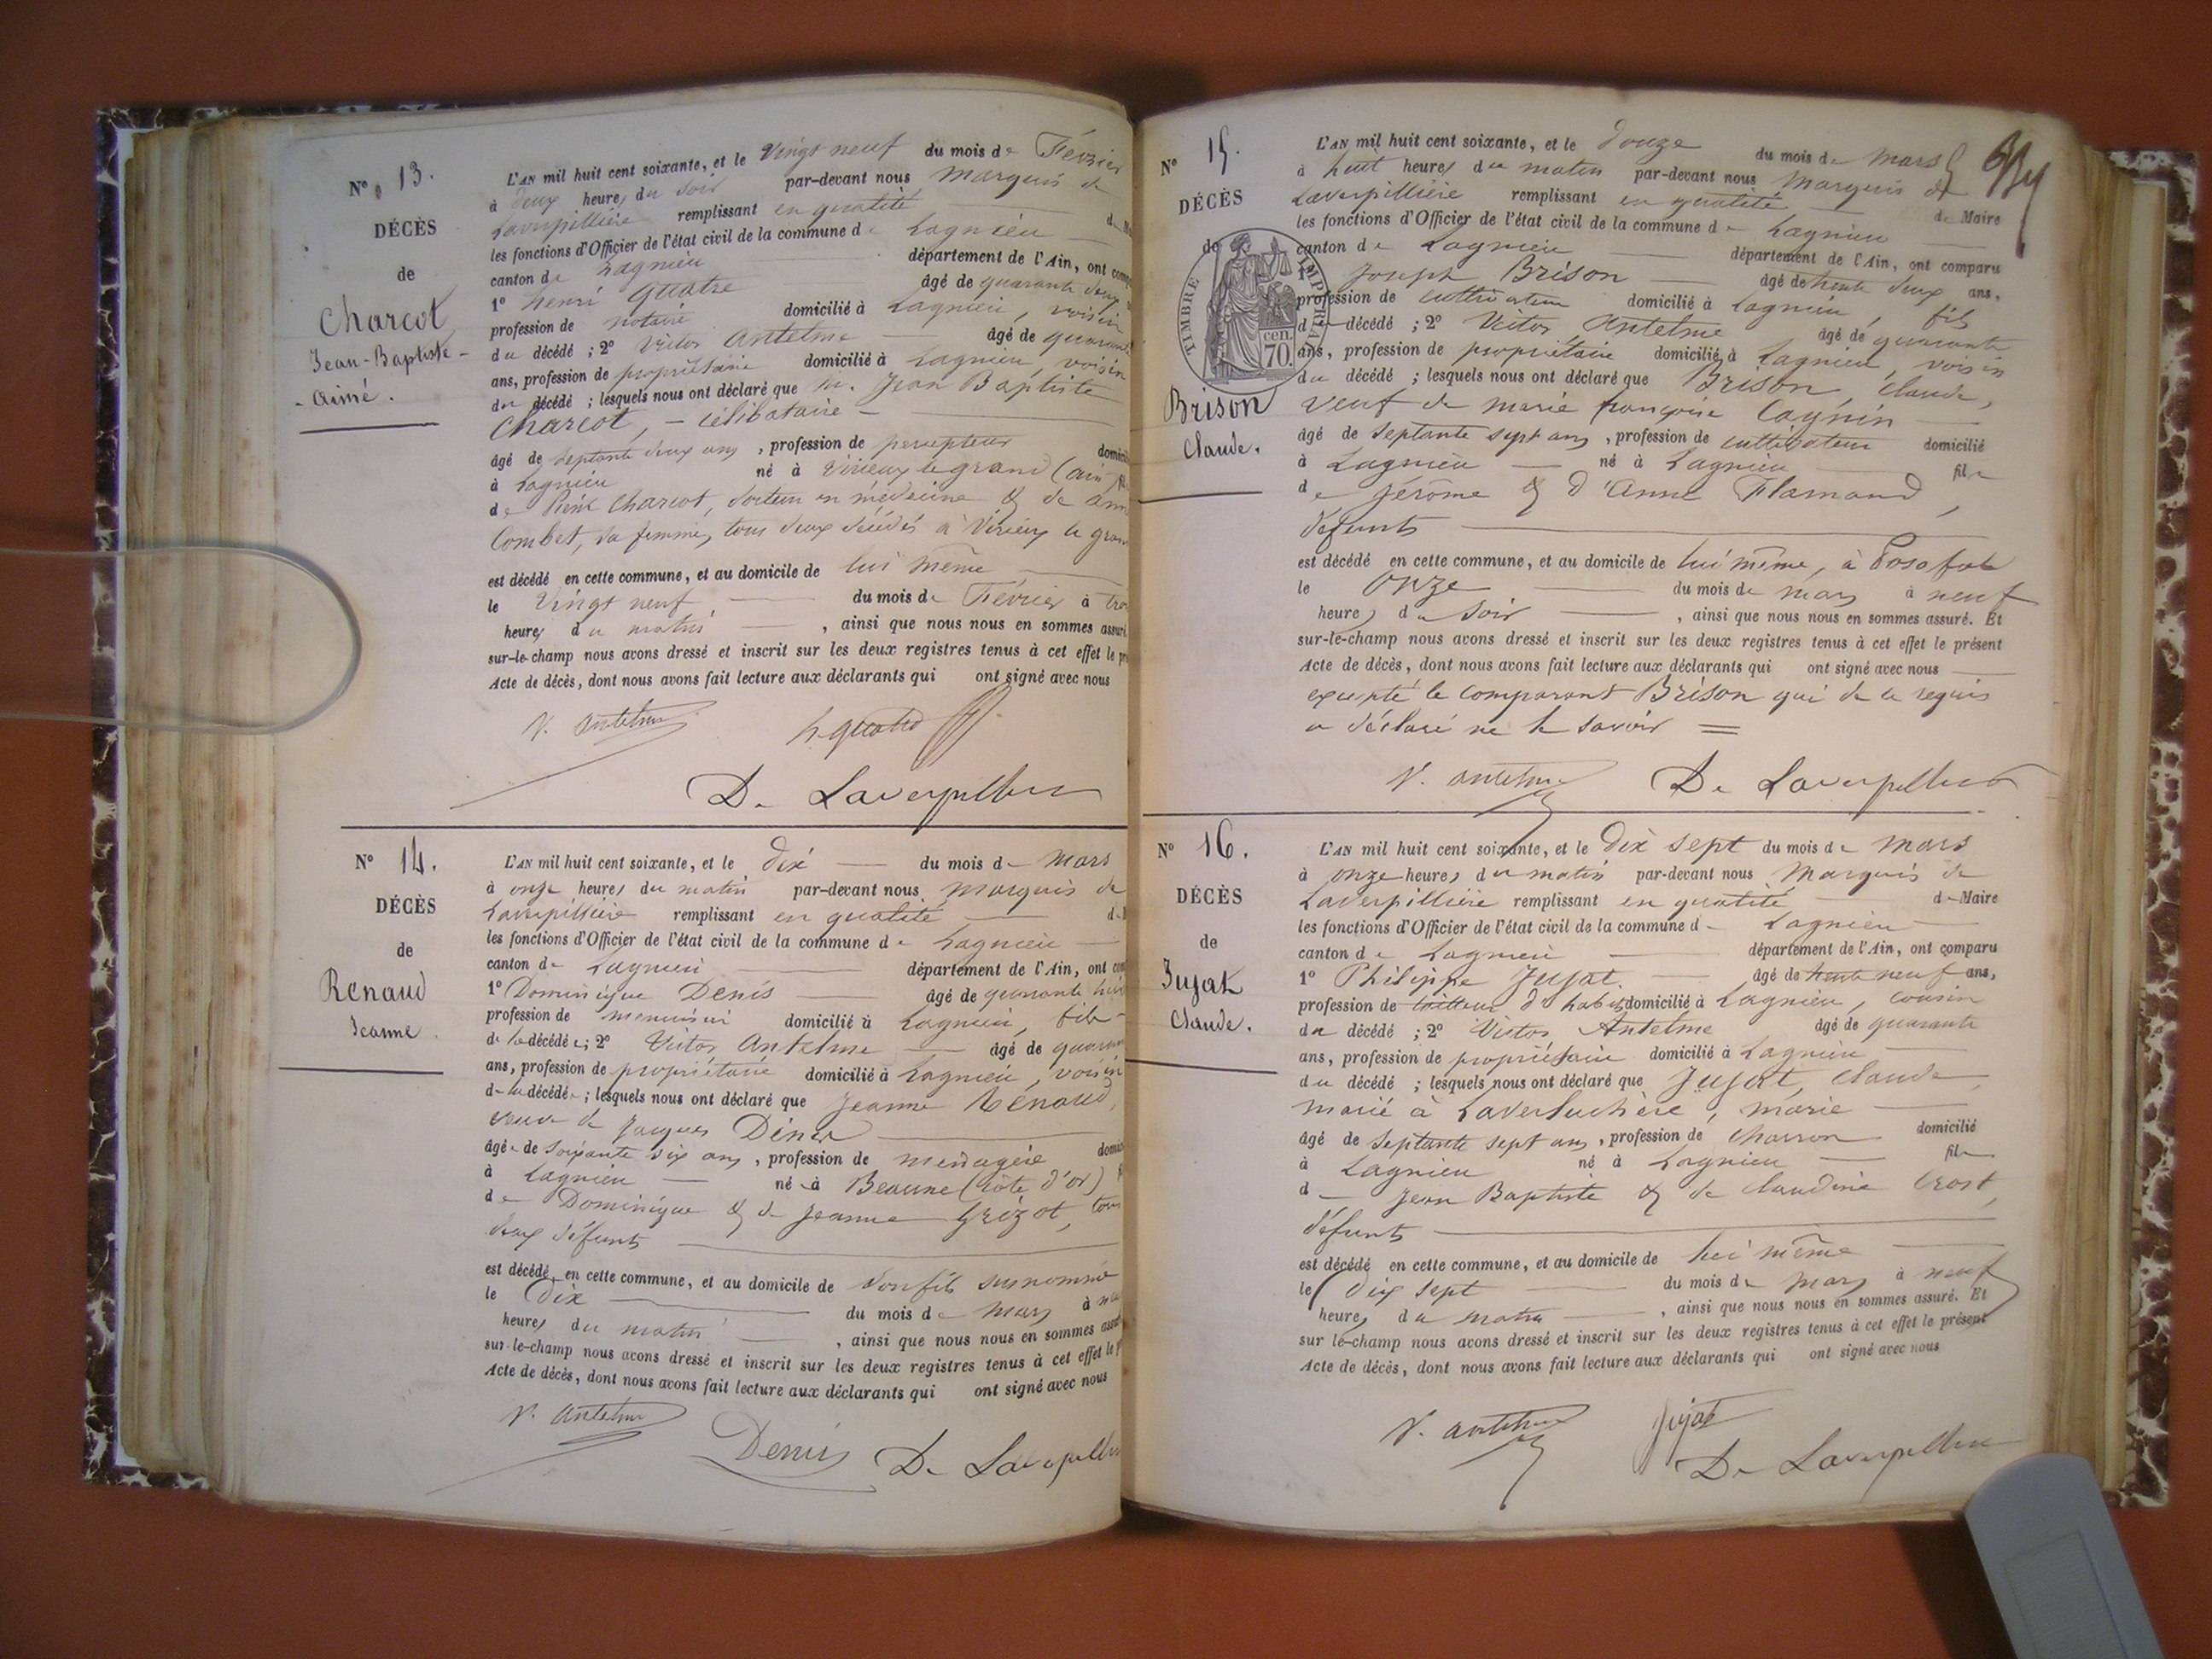 N° 13.
DÉCÈS
de
Charcot
Jean-Baptiste-
-Aimé.
L'AN mil huit cent soixante, et le Vingt neuf du mois de Février
à deux heures du soir par-devant nous Marquis de
Laverpillière remplissant en qualité
les fonctions d'Officier de l'état civil de la commune de Lagnieu
canton de Lagnieu département de l'Ain, ont
1° henri Quatre âgé de quarante deux
profession de notaire domicilié à Lagnieu, voisin
du décédé ; 2° Victor Antelme âgé de quarante
ans, profession de propriétaire domicilié à Lagnieu, voisin
du décédé ; lesquels nous ont déclaré que M. Jean Baptiste
Charcot, - célibataire -
âgé de septante deux ans, profession de percepteur
à Lagnieu né à Virieux le grand (ain)
de Pierre Charcot, docteur en médecine & de
Combet, sa femme, tous deux décédés à Virieux le
est décédé en cette commune, et au domicile de lui même
le Vingt neuf du mois de Février à
heures du matin, ainsi que nous nous en sommes assuré.
sur-le-champ nous avons dressé et inscrit sur les deux registres tenus à cet effet le
Acte de décès, dont nous avons fait lecture aux déclarants qui ont signé avec nous
V. Antelme h. Quatre
De Laverpilliere
N° 14.
DÉCÈS
de
Renaud
Jeanne
L'AN mil huit cent soixante, et le dix du mois de Mars
à onze heures du matin par-devant nous Marquis de
Laverpillière remplissant en qualité
les fonctions d'Officier de l'état civil de la commune de Lagnieu
canton de Lagnieu département de l'Ain, ont
1° Dominique Denis âgé de quarante
profession de menuisier domicilié à Lagnieu, fils
de la décédée ; 2° Victor Antelme âgé de
ans, profession de propriétaire domicilié à Lagnieu, voisin
de la décédée ; lesquels nous ont déclaré que Jeanne Renaud,
veuve de Jacques Denis
âgée de soixante six ans, profession de ménagère
à Lagnieu née à Beaune (côte d'or)
de Dominique & de Jeanne Grizot, tous
deux défunts
est décédé en cette commune, et au domicile de son fils susnommé
le Dix du mois de Mars à
heures du matin, ainsi que nous nous en sommes
sur-le-champ nous avons dressé et inscrit sur les deux registres tenus à cet effet le
Acte de décès, dont nous avons fait lecture aux déclarants qui ont signé avec nous
V. Antelme
Denis De
N° 15.
DÉCÈS
de
TIMBRE IMPERIAL
cen.
70.
Brison
Claude.
L'AN mil huit cent soixante, et le douze du mois de Mars
à huit heures du matin par-devant nous Marquis de
Laverpillière remplissant en qualité de Maire
les fonctions d'Officier de l'état civil de la commune de Lagnieu
canton de Lagnieu département de l'Ain, ont comparu
Joseph Brison âgé de trente deux ans,
profession de cultivateur domicilié à Lagnieu, fils
du décédé ; 2° Victor Antelme âgé de quarante
ans, profession de propriétaire domicilié à Lagnieu, voisin
du décédé ; lesquels nous ont déclaré que Brison, Claude,
veuf de Marie françoise Cagnin
âgé de septante sept ans, profession de cultivateur domicilié
à Lagnieu né à Lagnieu fils
de Jérôme & d'Anne Flamand,
défunts
est décédé en cette commune, et au domicile de lui même, à Posafol
le Onze du mois de mars à neuf
heures du soir, ainsi que nous nous en sommes assuré. Et
sur-le-champ nous avons dressé et inscrit sur les deux registres tenus à cet effet le présent
Acte de décès, dont nous avons fait lecture aux déclarants qui ont signé avec nous
excepté le comparant Brison qui de ce requis
a déclaré ne le savoir
V. Antelme De Laverpilliere
N° 16.
DÉCÈS
de
Jujat
Claude.
L'AN mil huit cent soixante, et le Dix sept du mois de Mars
à onze heures du matin par-devant nous Marquis de
Laverpillière remplissant en qualité de Maire
les fonctions d'Officier de l'état civil de la commune de Lagnieu
canton de Lagnieu département de l'Ain, ont comparu
1° Philippe Jujat âgé de trente neuf ans,
profession de tailleur d'habits domicilié à Lagnieu, cousin
du décédé ; 2° Victor Antelme âgé de quarante
ans, profession de propriétaire domicilié à Lagnieu
du décédé ; lesquels nous ont déclaré que Jujat, Claude
marié à Laverluchère, Marie
âgé de septante sept ans, profession de charron domicilié
à Lagnieu né à Lagnieu fils
de Jean Baptiste & de Claudine Crost,
défunts
est décédé en cette commune, et au domicile de lui même
le Dix sept du mois de Mars à neuf
heures du matin, ainsi que nous nous en sommes assuré. Et
sur-le-champ nous avons dressé et inscrit sur les deux registres tenus à cet effet le présent
Acte de décès, dont nous avons fait lecture aux déclarants qui ont signé avec nous
V. Antelme Jujat
De Laverpilliere